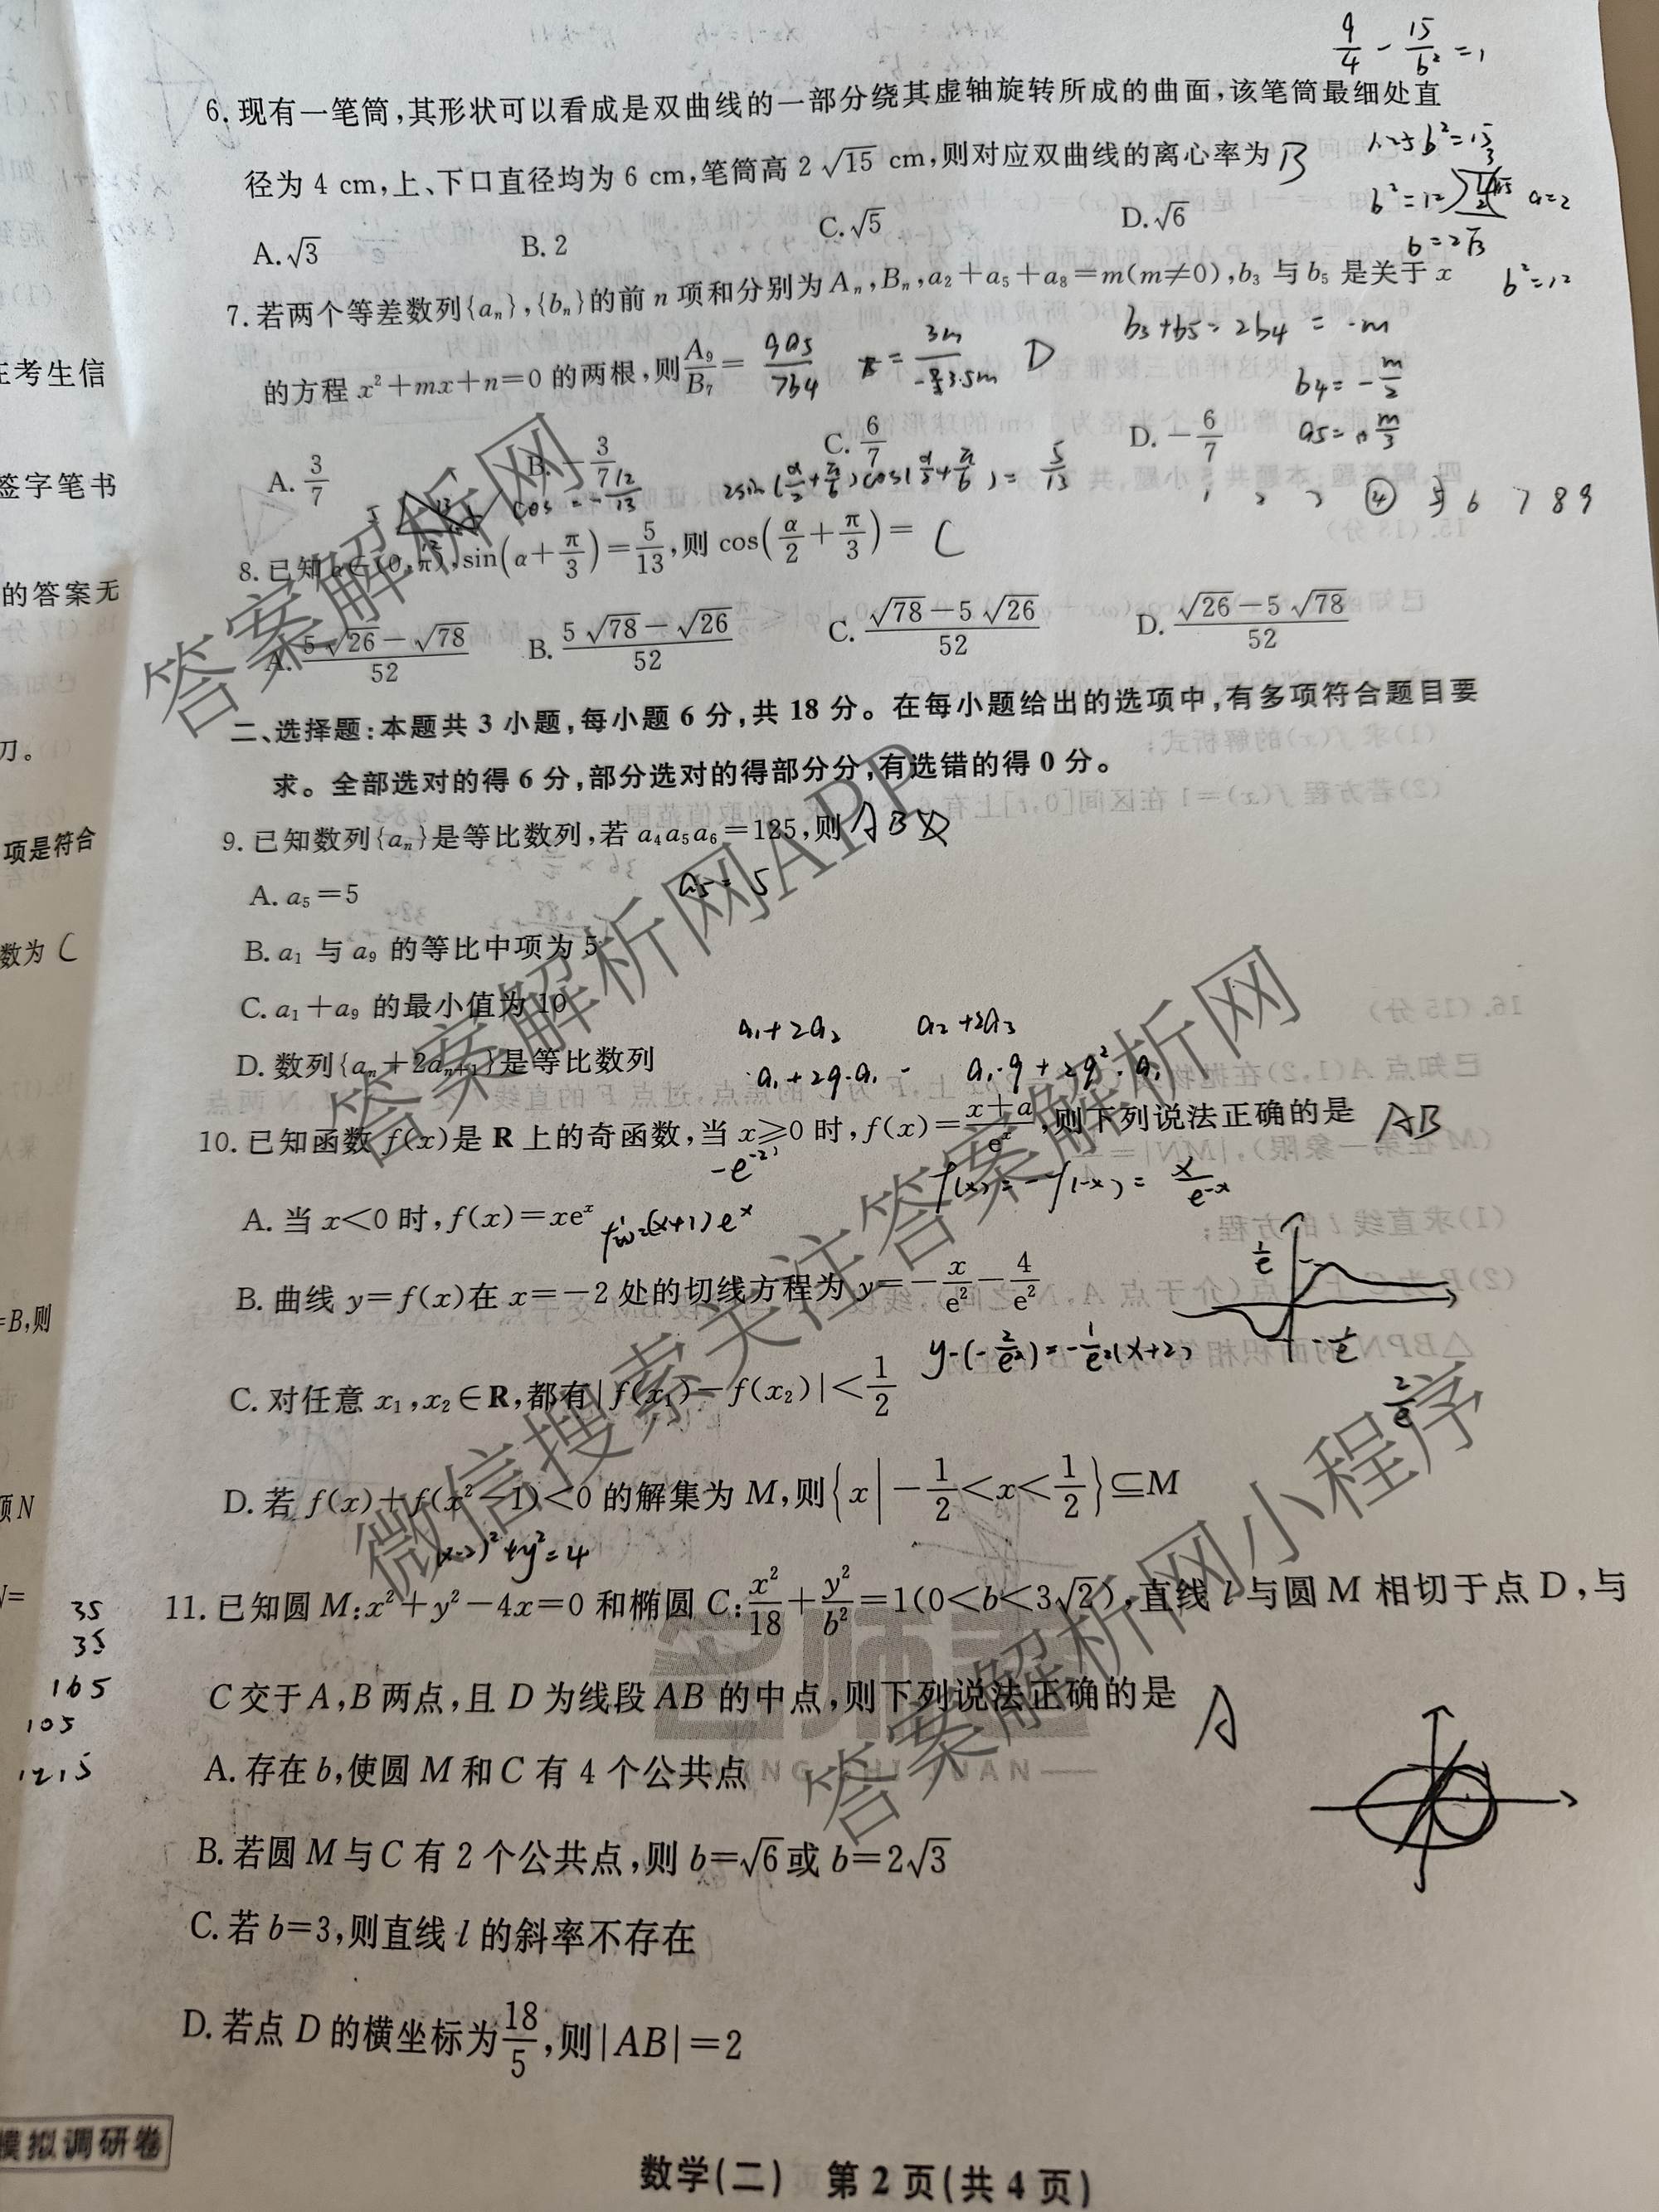 9/4 - 15/b² = 1
6. 现有一笔筒,其形状可以看成是双曲线的一部分绕其虚轴旋转所成的曲面,该笔筒最细处直
径为 4 cm,上、下口直径均为 6 cm,笔筒高 2√15 cm,则对应双曲线的离心率为 B
1.25b²=15
b²=12 a=2
b=2√3
b²=12
A.√3 B. 2 C.√5 D.√6
7. 若两个等差数列{aₙ},{bₙ}的前 n 项和分别为 Aₙ,Bₙ,a₂+a₅+a₈=m(m≠0),b₃ 与 b₅ 是关于 x
的方程 x²+mx+n=0 的两根,则A₉/B₇= 9a5/7b4 = 3m/-3.5m D
b3+b5=2b4=-m
b4=-m/2
a5=m/3
A. 3/7 B. -3/7 C. 6/7 D. -6/7
cos=-12/13
2sin(α/2+π/6)cos(α/2+π/6)=5/13
1 2 3 ④ 5 6 7 8 9
8. 已知 α∈(0,π),sin(α+π/3)=5/13,则 cos(α/2+π/3)= C
A. (5√26-√78)/52 B. (5√78-√26)/52 C. (√78-5√26)/52 D. (√26-5√78)/52
二、选择题:本题共 3 小题,每小题 6 分,共 18 分。在每小题给出的选项中,有多项符合题目要
求。全部选对的得 6 分,部分选对的得部分分,有选错的得 0 分。
9. 已知数列{aₙ}是等比数列,若 a₄a₅a₆=125,则 AB
A. a₅=5
a5=5
B. a₁ 与 a₉ 的等比中项为 5
C. a₁+a₉ 的最小值为 10
a1+2a2 a2+2a3
D. 数列{aₙ+2aₙ₊₁}是等比数列
a1+2q·a1 a1·q+2q²·a1
10. 已知函数 f(x)是 R 上的奇函数,当 x≥0 时,f(x)=(x+a)/eˣ,则下列说法正确的是 AB
-e⁻²
f(x)=-f(-x)=x/e⁻ˣ
A. 当 x<0 时,f(x)=xeˣ
f'(x)=(x+1)eˣ
1/e
B. 曲线 y=f(x)在 x=-2 处的切线方程为 y=-x/e²-4/e²
y-(-2/e²)=-1/e²(x+2)
-1/e
C. 对任意 x₁,x₂∈R,都有|f(x₁)-f(x₂)|<1/2
2/e
D. 若 f(x)+f(x²-1)<0 的解集为 M,则{x|-1/2<x<1/2}⊆M
(x-2)²+y²=4
11. 已知圆 M:x²+y²-4x=0 和椭圆 C:x²/18+y²/b²=1(0<b<3√2),直线 l 与圆 M 相切于点 D,与
C 交于 A,B 两点,且 D 为线段 AB 的中点,则下列说法正确的是 A
A. 存在 b,使圆 M 和 C 有 4 个公共点
B. 若圆 M 与 C 有 2 个公共点,则 b=√6或 b=2√3
C. 若 b=3,则直线 l 的斜率不存在
D. 若点 D 的横坐标为18/5,则|AB|=2
数学(二) 第 2 页(共 4 页)
考生信
签字笔书
的答案无
刀。
项是符合
数为 C
=B,则
项N
35
35
165
105
1215
模拟调研卷
答案解析网
答案解析网APP
微信搜索关注答案解析网
答案解析网小程序